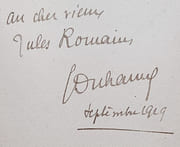 au cher vieux
Jules Romains,
GDuhamel
Septembre 1919